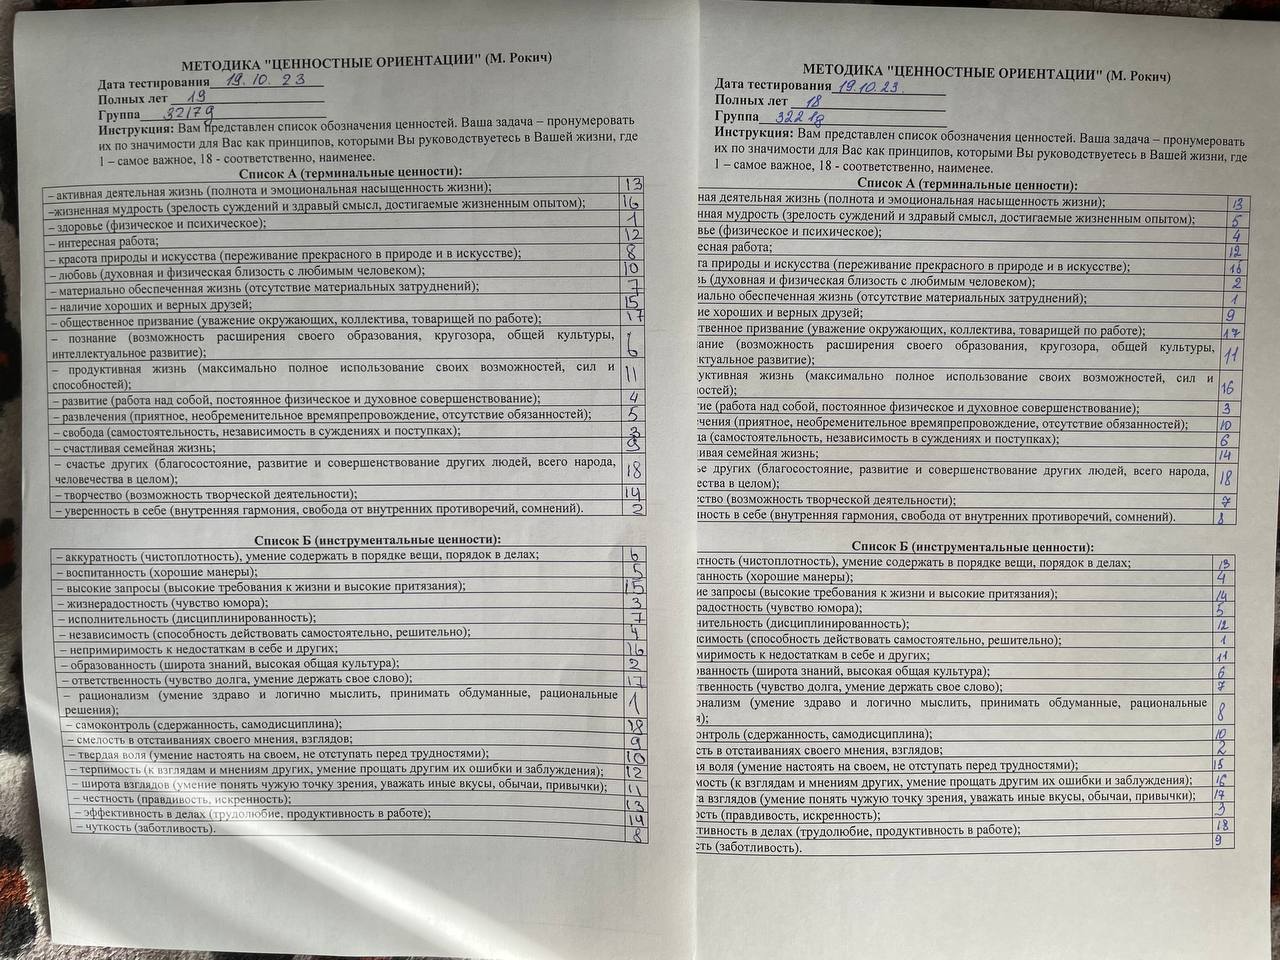 МЕТОДИКА "ЦЕННОСТНЫЕ ОРИЕНТАЦИИ" (М. Рокич)
Дата тестирования 19.10.23
Полных лет 19
Группа 32179
Инструкция: Вам представлен список обозначения ценностей. Ваша задача – пронумеровать
их по значимости для Вас как принципов, которыми Вы руководствуетесь в Вашей жизни, где
1 – самое важное, 18 - соответственно, наименее.
Список А (терминальные ценности):
– активная деятельная жизнь (полнота и эмоциональная насыщенность жизни); 13
–жизненная мудрость (зрелость суждений и здравый смысл, достигаемые жизненным опытом); 16
– здоровье (физическое и психическое); 1
– интересная работа; 12
– красота природы и искусства (переживание прекрасного в природе и в искусстве); 8
– любовь (духовная и физическая близость с любимым человеком); 10
– материально обеспеченная жизнь (отсутствие материальных затруднений); 7
– наличие хороших и верных друзей; 15
– общественное призвание (уважение окружающих, коллектива, товарищей по работе); 17
– познание (возможность расширения своего образования, кругозора, общей культуры,
интеллектуальное развитие); 6
– продуктивная жизнь (максимально полное использование своих возможностей, сил и
способностей); 11
– развитие (работа над собой, постоянное физическое и духовное совершенствование); 4
– развлечения (приятное, необременительное времяпрепровождение, отсутствие обязанностей); 5
– свобода (самостоятельность, независимость в суждениях и поступках); 3
– счастливая семейная жизнь; 9
– счастье других (благосостояние, развитие и совершенствование других людей, всего народа,
человечества в целом); 18
– творчество (возможность творческой деятельности); 14
– уверенность в себе (внутренняя гармония, свобода от внутренних противоречий, сомнений). 2
Список Б (инструментальные ценности):
– аккуратность (чистоплотность), умение содержать в порядке вещи, порядок в делах; 6
– воспитанность (хорошие манеры); 5
– высокие запросы (высокие требования к жизни и высокие притязания); 15
– жизнерадостность (чувство юмора); 3
– исполнительность (дисциплинированность); 7
– независимость (способность действовать самостоятельно, решительно); 4
– непримиримость к недостаткам в себе и других; 16
– образованность (широта знаний, высокая общая культура); 2
– ответственность (чувство долга, умение держать свое слово); 17
– рационализм (умение здраво и логично мыслить, принимать обдуманные, рациональные
решения); 1
– самоконтроль (сдержанность, самодисциплина); 18
– смелость в отстаиваниях своего мнения, взглядов; 9
– твердая воля (умение настоять на своем, не отступать перед трудностями); 10
– терпимость (к взглядам и мнениям других, умение прощать другим их ошибки и заблуждения); 12
– широта взглядов (умение понять чужую точку зрения, уважать иные вкусы, обычаи, привычки); 11
– честность (правдивость, искренность); 13
– эффективность в делах (трудолюбие, продуктивность в работе); 14
– чуткость (заботливость). 8
МЕТОДИКА "ЦЕННОСТНЫЕ ОРИЕНТАЦИИ" (М. Рокич)
Дата тестирования 19.10.23.
Полных лет 18
Группа
Инструкция: Вам представлен список обозначения ценностей. Ваша задача – пронумеровать
их по значимости для Вас как принципов, которыми Вы руководствуетесь в Вашей жизни, где
1 – самое важное, 18 - соответственно, наименее.
Список А (терминальные ценности):
ная деятельная жизнь (полнота и эмоциональная насыщенность жизни); 13
нная мудрость (зрелость суждений и здравый смысл, достигаемые жизненным опытом); 5
вье (физическое и психическое); 4
есная работа; 12
та природы и искусства (переживание прекрасного в природе и в искусстве); 15
вь (духовная и физическая близость с любимым человеком); 2
иально обеспеченная жизнь (отсутствие материальных затруднений); 1
ие хороших и верных друзей; 9
ственное призвание (уважение окружающих, коллектива, товарищей по работе); 17
ание (возможность расширения своего образования, кругозора, общей культуры,
ктуальное развитие); 11
уктивная жизнь (максимально полное использование своих возможностей, сил и
ностей); 16
тие (работа над собой, постоянное физическое и духовное совершенствование); 3
чения (приятное, необременительное времяпрепровождение, отсутствие обязанностей); 10
да (самостоятельность, независимость в суждениях и поступках); 6
ивая семейная жизнь; 14
ье других (благосостояние, развитие и совершенствование других людей, всего народа,
ества в целом); 18
ство (возможность творческой деятельности); 7
нность в себе (внутренняя гармония, свобода от внутренних противоречий, сомнений). 8
Список Б (инструментальные ценности):
тность (чистоплотность), умение содержать в порядке вещи, порядок в делах; 13
танность (хорошие манеры); 4
ие запросы (высокие требования к жизни и высокие притязания); 14
радостность (чувство юмора); 5
нительность (дисциплинированность); 12
исимость (способность действовать самостоятельно, решительно); 1
миримость к недостаткам в себе и других; 11
ованность (широта знаний, высокая общая культура); 6
твенность (чувство долга, умение держать свое слово); 7
онализм (умение здраво и логично мыслить, принимать обдуманные, рациональные
я); 8
онтроль (сдержанность, самодисциплина); 10
сть в отстаиваниях своего мнения, взглядов; 2
ая воля (умение настоять на своем, не отступать перед трудностями); 15
мость (к взглядам и мнениям других, умение прощать другим их ошибки и заблуждения); 16
та взглядов (умение понять чужую точку зрения, уважать иные вкусы, обычаи, привычки); 17
ость (правдивость, искренность); 3
тивность в делах (трудолюбие, продуктивность в работе); 18
сть (заботливость). 9